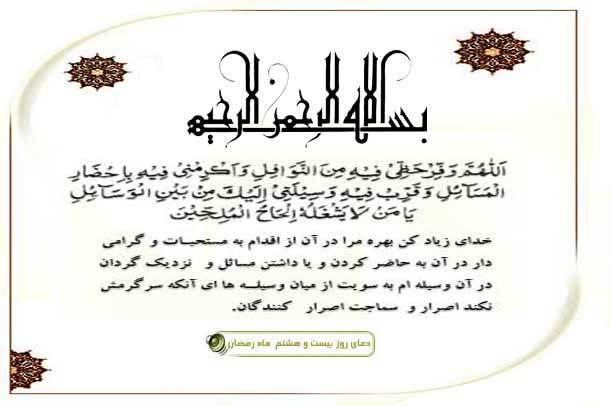 بسم الله الرحمن الرحیم
اَللّهُمَّ وَفِّرْ حَظّی فیهِ مِنَ النَّوافِلِ وَاَکْرِمْنی فیهِ بِاِحْضارِ
الْمَسآئِلِ وَقَرِّبْ فیهِ وَسیلَتی اِلَیْکَ مِنْ بَیْنِ الْوَسآئِلِ
یا مَنْ لا یَشْغَلُهُ اِلْحاحُ الْمُلِحّینَ
خدای زیاد کن بهره مرا در آن از اقدام به مستحبات و گرامی
دار در آن به حاضر کردن و یا داشتن مسائل و نزدیک گردان
در آن وسیله ام به سویت از میان وسیله ها ای آنکه سرگرمش
نکند اصرار و سماجت اصرار کنندگان.
دعای روز بیست و هشتم ماه رمضان